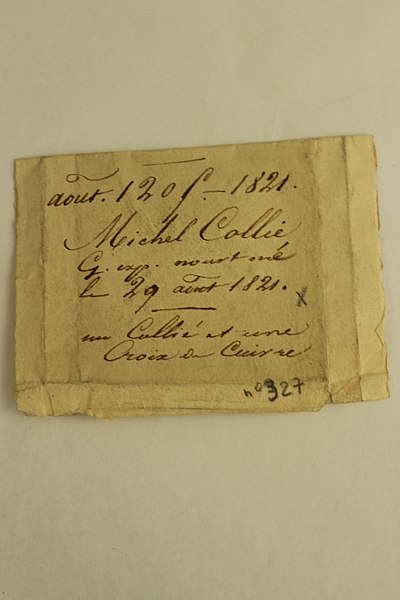 août. 120 f. — 1821.
Michel Collié
G. exp. nourt né
le 29 août 1821.
x
un Collié et une
Croix de Cuivre
n° 327